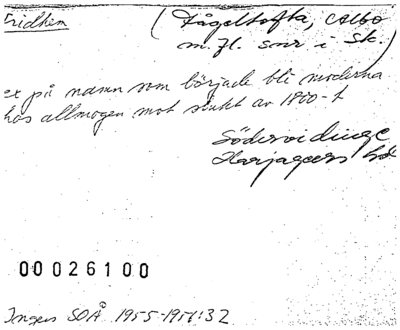 Fridhem (Fågeltofta, Albo
m.fl. snr. i Sk.)
ex på namn som började bli moderna
hos allmogen mot slutet av 1800-t
Södervidinge
Harjagers hd
00026100
Ingers SOÅ 1955-1957:32